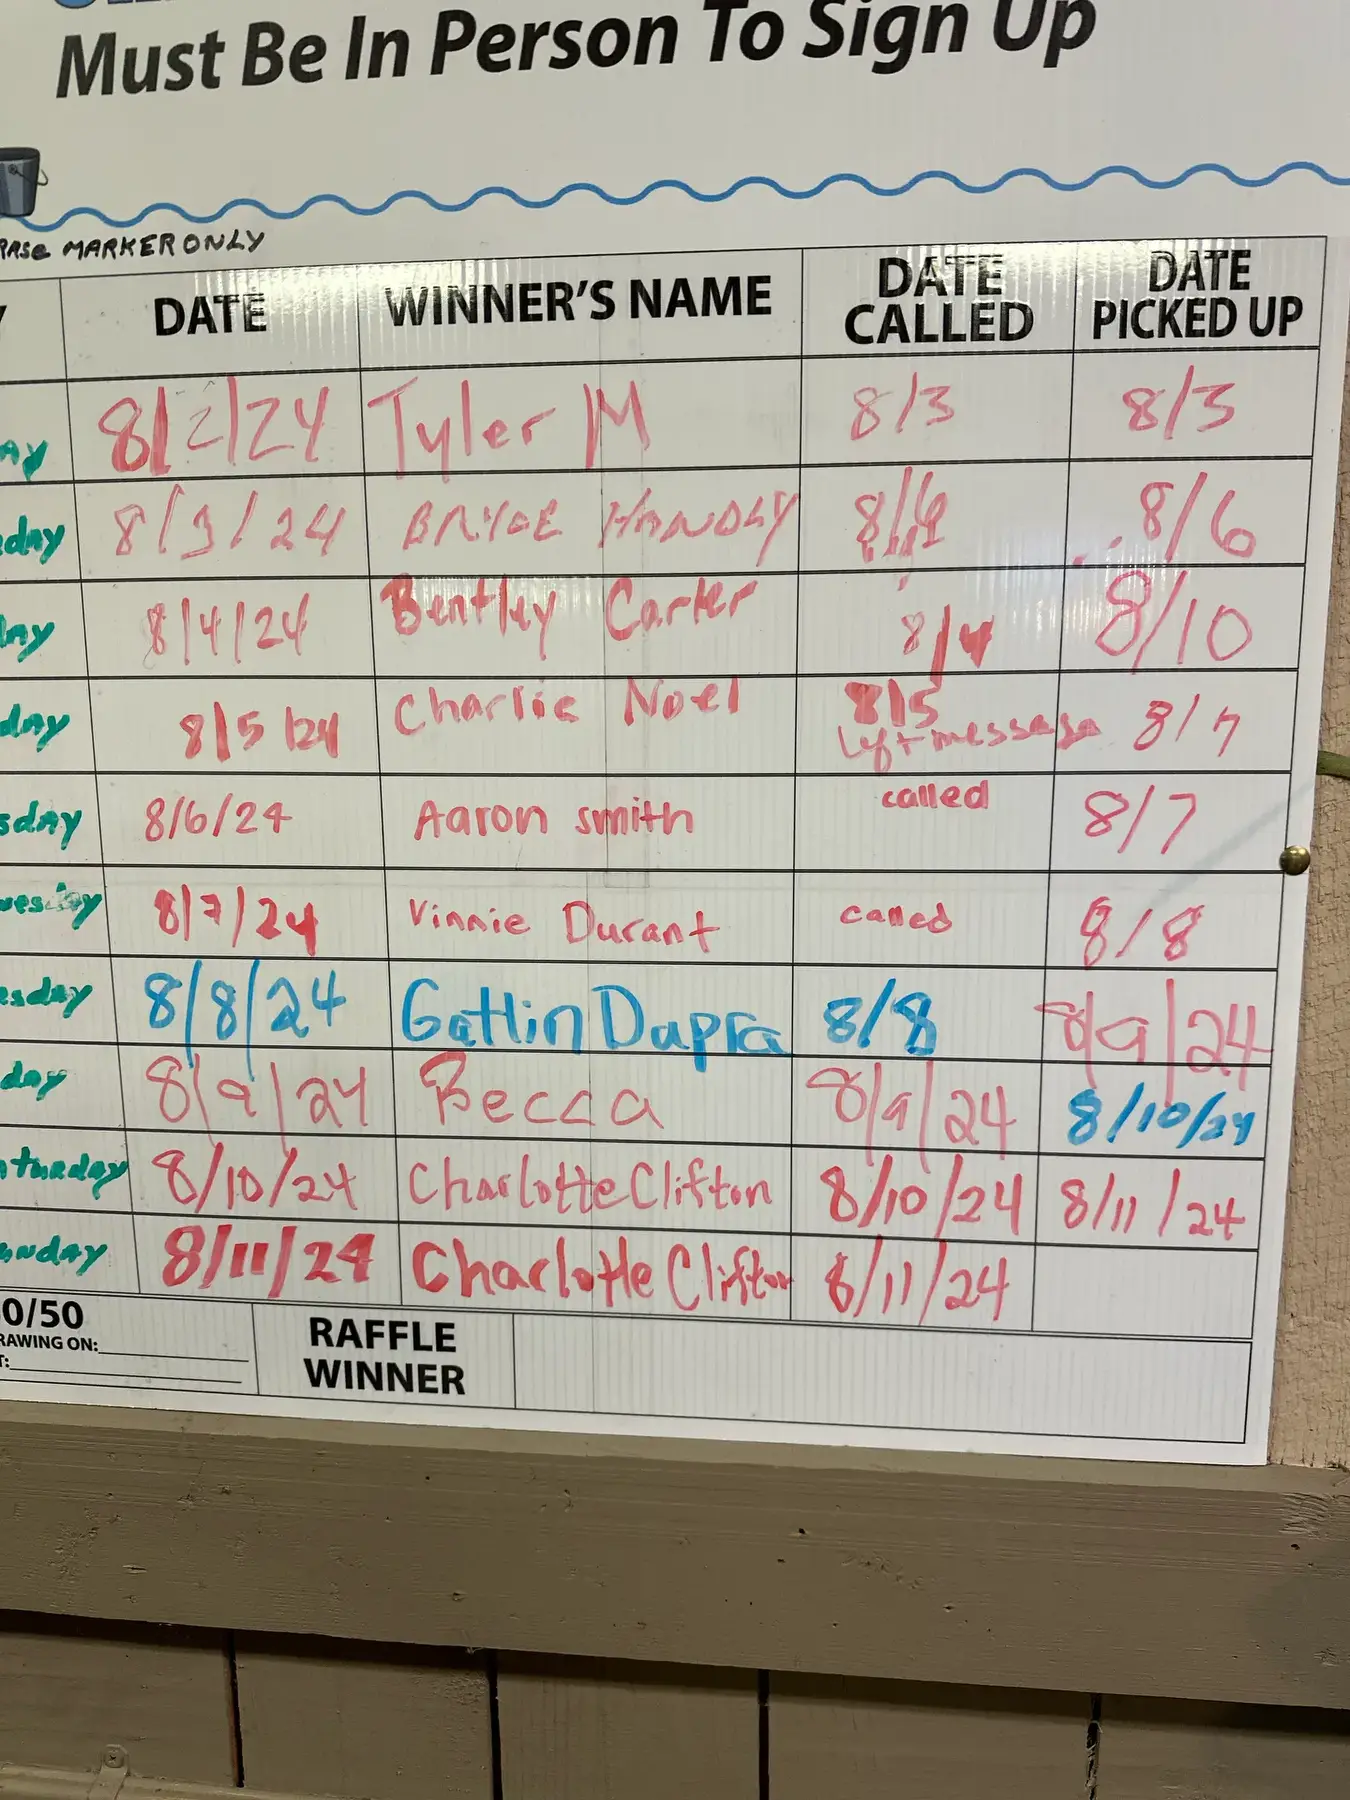 Must Be In Person To Sign Up
MARKER ONLY
DATE WINNER'S NAME DATE CALLED DATE PICKED UP
8/2/24 Tyler M 8/3 8/3
day 8/3/24 BRYCE HANDLY 8/6 8/6
8/4/24 Bentley Carter 8/4 8/10
day 8/5/24 Charlie Noel 8/5 Left message 8/7
sday 8/6/24 Aaron smith called 8/7
8/7/24 Vinnie Durant called 8/8
sday 8/8/24 Gatlin Dupra 8/8 8/9/24
day 8/9/24 Becca 8/9/24 8/10/24
8/10/24 Charlotte Clifton 8/10/24 8/11/24
8/11/24 Charlotte Clifton 8/11/24
0/50
RAWING ON:
T:
RAFFLE
WINNER